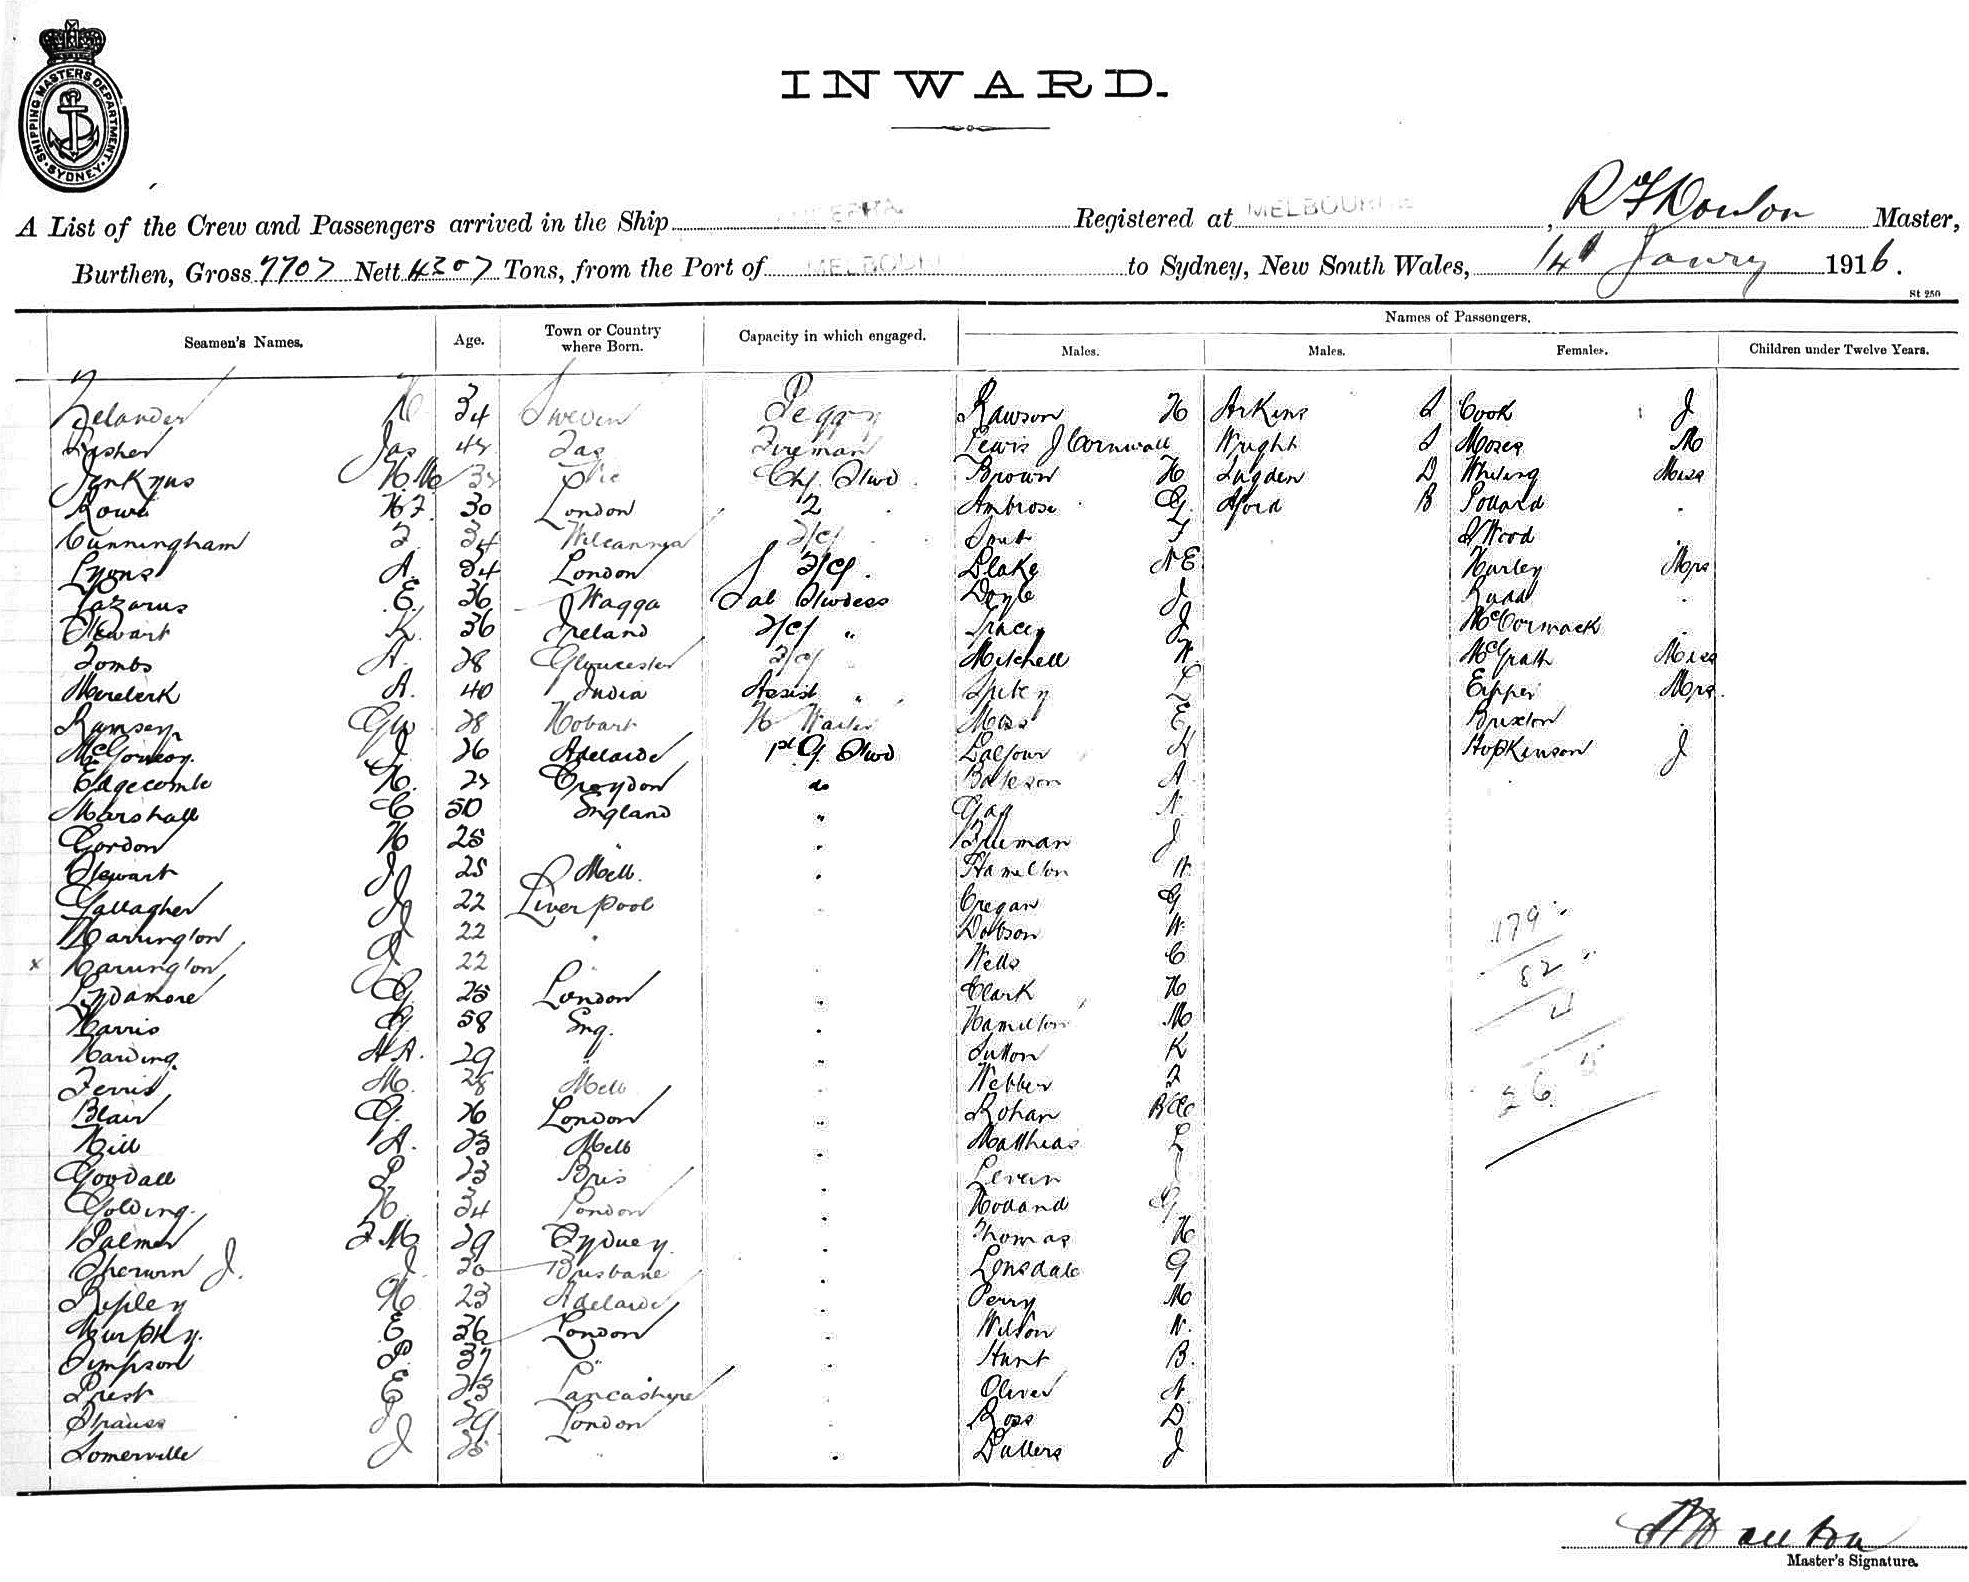 SHIPPING MASTERS DEPARTMENT
SYDNEY
INWARD.
A List of the Crew and Passengers arrived in the Ship Registered at MELBOURNE, Master,
Burthen, Gross 7707 Nett 4307 Tons, from the Port of MELBOURNE to Sydney, New South Wales, 14th 1916.
St 250
Seamen's Names. Age. Town or Country where Born. Capacity in which engaged. Names of Passengers.
Males. Males. Females. Children under Twelve Years.
34 Sweden Peggy Rawson H Arkins S Cook J
Jas Tas Fireman Lewis J Cornwall Wright S Moses M
Jenkyns H.M. Vic Chf. Stwd. Brown H Lugden D Whiting Miss
Rowe H F. 30 London 2 Ambrose G. Aford B Pollard
Cunningham F 34 Wilcannia Wood
Lyons A. London Blake N E Hurley Mrs
Lazarus E. 36 Wagga Sal Stwdess Doyle J Rudd
Stewart K. 36 Ireland " Tracey J McCormack
Tombs A. 28 Gloucester Mitchell W McGrath Miss
A. 40 India Assist " L Eipper Mrs.
Ramsey Geo. 28 Hobart Waiter Moss E Buxton
J. 26 Adelaide 1st G. Stwd Balfour H Hopkinson J
Edgecombe H. Croydon do Bateson A
Marshall C 50 England " Gay N
Gordon H 25 " J
Stewart J 25 Melb. Hamilton W.
Gallagher J 22 Liverpool Cregan G
Harrington J 22 Dobson W.
x Harrington J 22 Wells C
179
Lydamore G. 25 London " Clark H
82
Harris G. 58 Eng. Hamilton M
Harding. A A. 29 " " Sutton K
Ferris M. 28 Melb Webber F
Blair G. 26 London " Rohan
26
Hill A. 23 Melb Matthias L
Goodall P. 23 Bris Levein J
Golding. H. 34 London Holland G
Palmer F M. 29 Sydney. Thomas H
Sherwin J. J 30 Brisbane Lonsdale G
Ripley H 23 Adelaide Perry M
Murphy. E 26 London Wilson W.
Simpson P. 37 " Hunt B.
Prest E 23 Lancashire Oliver A.
Strauss J 29 London Ross D.
Somerville J Dullers J
Master's Signature.